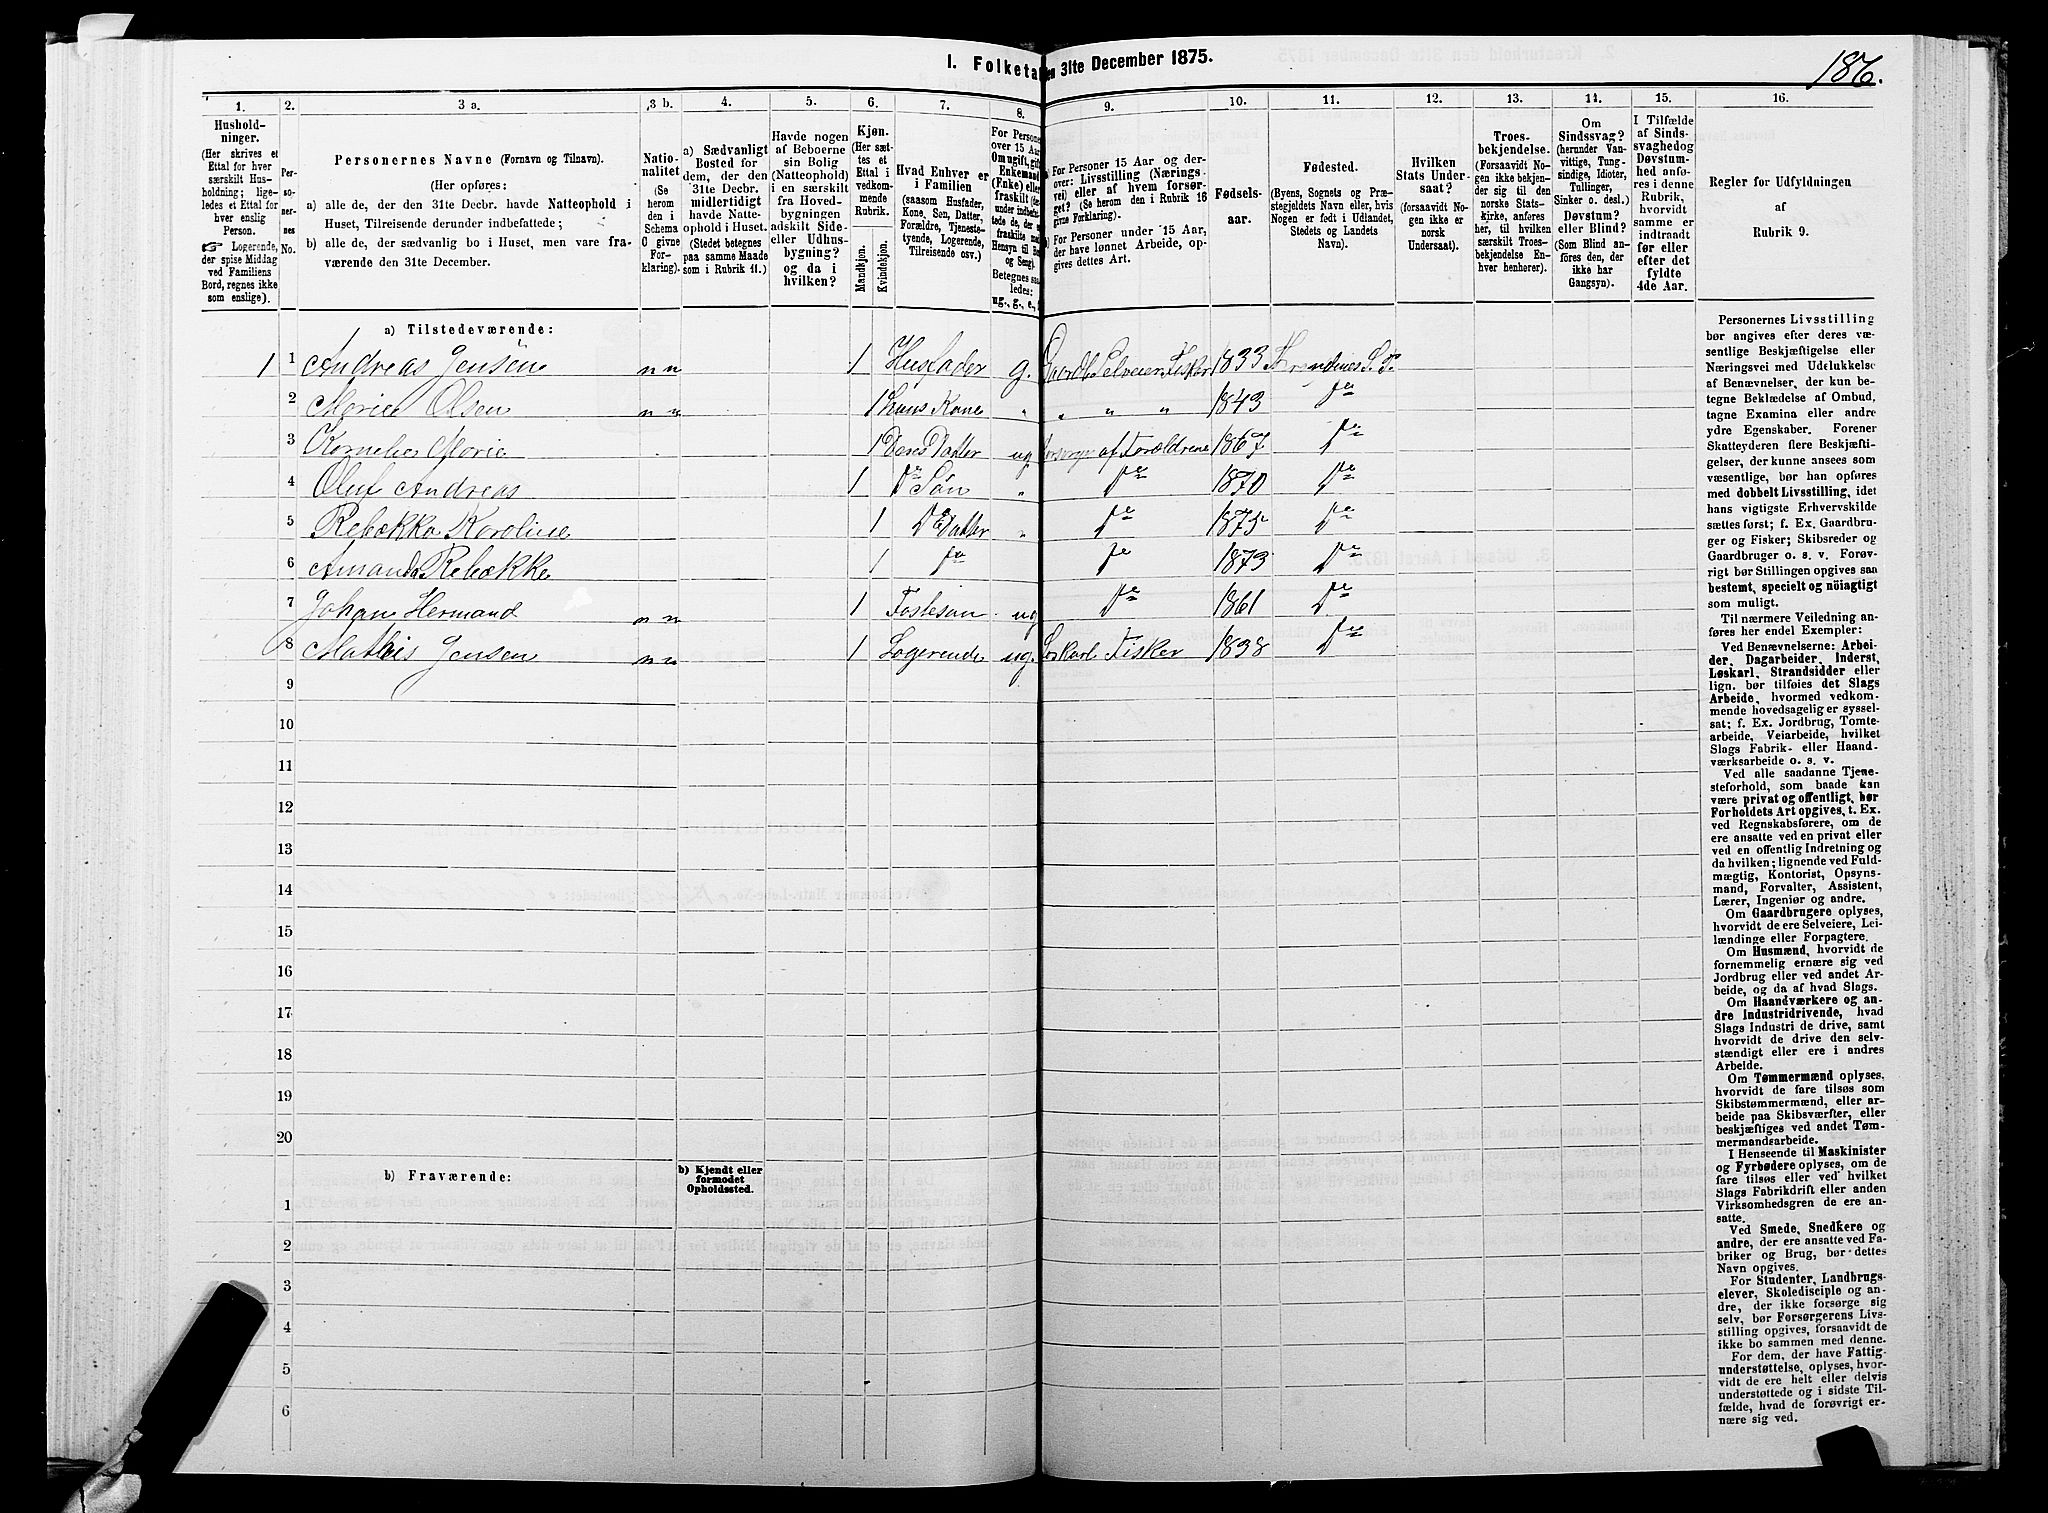 I. Folketa en 31te December 1875.
186.
1. 2. 3 a. 3 b. 4. 5. 6. 7. 8. 9. 10. 11. 12. 13. 14. 15. 16.
Hushold-
ninger.
(Her skrives et
Ettal for hver
særskilt Hus-
holdning; lige-
ledes et Ettal for
hver enslig
Person.
☞ Logerende,
der spise Middag
ved Familiens
Bord, regnes ikke
som enslige).
Per-
so-
ner-
nes
No.
Personernes Navne (Fornavn og Tilnavn).
(Her opføres:
a) alle de, der den 31te Decbr. havde Natteophold i
Huset, Tilreisende derunder indbefattede;
b) alle de, der sædvanlig bo i Huset, men vare fra-
værende den 31te December.
Natio-
nalitet
(Se
herom
den i
Schema
C givne
For-
klaring).
a) Sædvanligt
Bosted for
dem, der den
31te Decbr.
midlertidigt
havde Natte-
ophold i Huset.
(Stedet betegnes
paa samme Maade
som i Rubrik 11.)
Havde nogen
af Beboerne
sin Bolig
(Natteophold)
i en særskilt
fra Hoved-
bygningen
adskilt Side-
eller Udhus-
bygning?
og da i
hvilken?
Kjøn.
(Her sæt-
tes et
Ettal i
vedkom-
mende
Rubrik.
Mandkjøn.
Kvindekjøn.
Hvad Enhver er
i Familien
(saasom Husfader,
Kone, Søn, Datter,
Forældre, Tjeneste-
tyende, Logerende,
Tilreisende osv.)
For Personer
over 15 Aar:
Om ugift, gift,
Enkemand
(Enke) eller
fraskilt
Betegnes saa-
ledes:
ug., g., e.,
For Personer 15 Aar og der-
over: Livsstilling (Nærings-
vei) eller af hvem forsør-
get? (Se herom den i Rubrik 16
givne Forklaring).
For Personer under 15 Aar,
der have lønnet Arbeide, op-
gives dettes Art.
Fødsels-
aar.
Fødested.
(Byens, Sognets og Præ-
stegjeldets Navn eller, hvis
Nogen er født i Udlandet,
Stedets og Landets
Navn).
Hvilken
Stats Under-
saat?
(forsaavidt No-
gen ikke er
norsk
Undersaat).
Troes-
bekjendelse.
(Forsaavidt No-
gen ikke bekjen-
der sig til den
norske Stats-
kirke, anføres
her, til hvilken
særskilt Troes-
bekjendelse En-
hver henhører).
Om
Sindssvag?
(herunder Van-
vittige, Tung-
sindige, Idioter,
Tullinger,
Sinker o. desl.)
Døvstum?
eller Blind?
(Som Blind an-
føres den, der
ikke har
Gangsyn).
I Tilfælde
af Sinds-
svaghed og
Døvstum-
hed anfø-
res i denne
Rubrik,
hvorvidt
samme er
indtraadt
før eller
efter det
fyldte
4de Aar.
Regler for Udfyldningen
af
Rubrik 9.
a) Tilstedeværende:
1 1 Andreas Jensen n n 1 Husfader g. Gaardb Selveier Fisker 1833
2 Marie Olsen n n 1 hans Kone " " " " 1843 Do
3 Kornelie Marie 1 Deres Datter ug forsørges af Forældrene 1867 Do
4 Oluf Andreas 1 Do Søn " Do 1870 Do
5 Rebækka Karoline 1 Do Datter " Do 1875 Do
6 Amanda Rebække 1 Do Do 1873 Do
7 Johan Hermand n n 1 Fostesøn ug Do 1861 Do
8 Mathis Jensen n n 1 Logerende ug. Løskarl Fisker 1838 Do
9
10
11
12
13
14
15
16
17
18
19
20
b) Fraværende:
b) Kjendt eller
formodet
Opholdssted.
1
2
3
4
5
6
Personernes Livsstilling
bør angives efter deres væ-
sentlige Beskjæftigelse eller
Næringsvei med Udelukkelse
af Benævnelser, der kun be-
tegne Beklædelse af Ombud,
tagne Examina eller andre
ydre Egenskaber. Forener
Skatteyderen flere Beskjæfti-
gelser, der kunne ansees som
væsentlige, bør han opføres
med dobbelt Livsstilling, idet
hans vigtigste Erhvervskilde
sættes først; f. Ex. Gaardbru-
ger og Fisker; Skibsreder og
Gaardbruger o. s. v. Forøv-
rigt bør Stillingen opgives saa
bestemt, specielt og nöiagtigt
som muligt.
Til nærmere Veiledning an-
føres her endel Exempler:
Ved Benævnelserne: Arbei-
der, Dagarbeider, Inderst,
Løskarl, Strandsidder eller
lign. bør tilføies det Slags
Arbeide, hvormed vedkom-
mende hovedsagelig er syssel-
sat; f. Ex. Jordbrug, Tomte-
arbeide, Veiarbeide, hvilket
Slags Fabrik- eller Haand-
værksarbeide o. s. v.
Ved alle saadanne Tjene-
steforhold, som baade kan
være privat og offentligt, bør
Forholdets Art opgives, t. Ex.
ved Regnskabsførere, om de
ere ansatte ved en privat eller
ved en offentlig Indretning og
da hvilken; lignende ved Fuld-
mægtig, Kontorist, Opsyns-
mand, Forvalter, Assistent,
Lærer, Ingeniør og andre.
Om Gaardbrugere oplyses,
hvorvidt de ere Selveiere, Lei-
lændinge eller Forpagtere.
Om Husmænd, hvorvidt de
fornemmelig ernære sig ved
Jordbrug eller ved andet Ar-
beide, og da af hvad Slags.
Om Haandværkere og an-
dre Industridrivende, hvad
Slags Industri de drive, samt
hvorvidt de drive den selv-
stændigt eller ere i andres
Arbeide.
Om Tømmermænd oplyses,
hvorvidt de fare tilsøs som
Skibstømmermænd, eller ar-
beide paa Skibsværfter, eller
beskjæftiges ved andet Tøm-
mermandsarbeide.
I Henseende til Maskinister
og Fyrbødere oplyses, om de
fare tilsøs eller ved hvilket
Slags Fabrikdrift eller anden
Virksomhedsgren de ere an-
satte.
Ved Smede, Snedkere og
andre, der ere ansatte ved Fa-
briker og Brug, bør dettes
Navn opgives.
For Studenter, Landbrugs-
elever, Skoledisciple og an-
dre, der ikke forsørge sig
selv, bør Forsørgerens Livs-
stilling opgives, forsaavidt de
ikke bo sammen med denne.
For dem, der have Fattig-
understøttelse, oplyses, hvor-
vidt de ere helt eller delvis
understøttede og i sidste Til-
fælde, hvad de forøvrigt er-
nære sig ved.